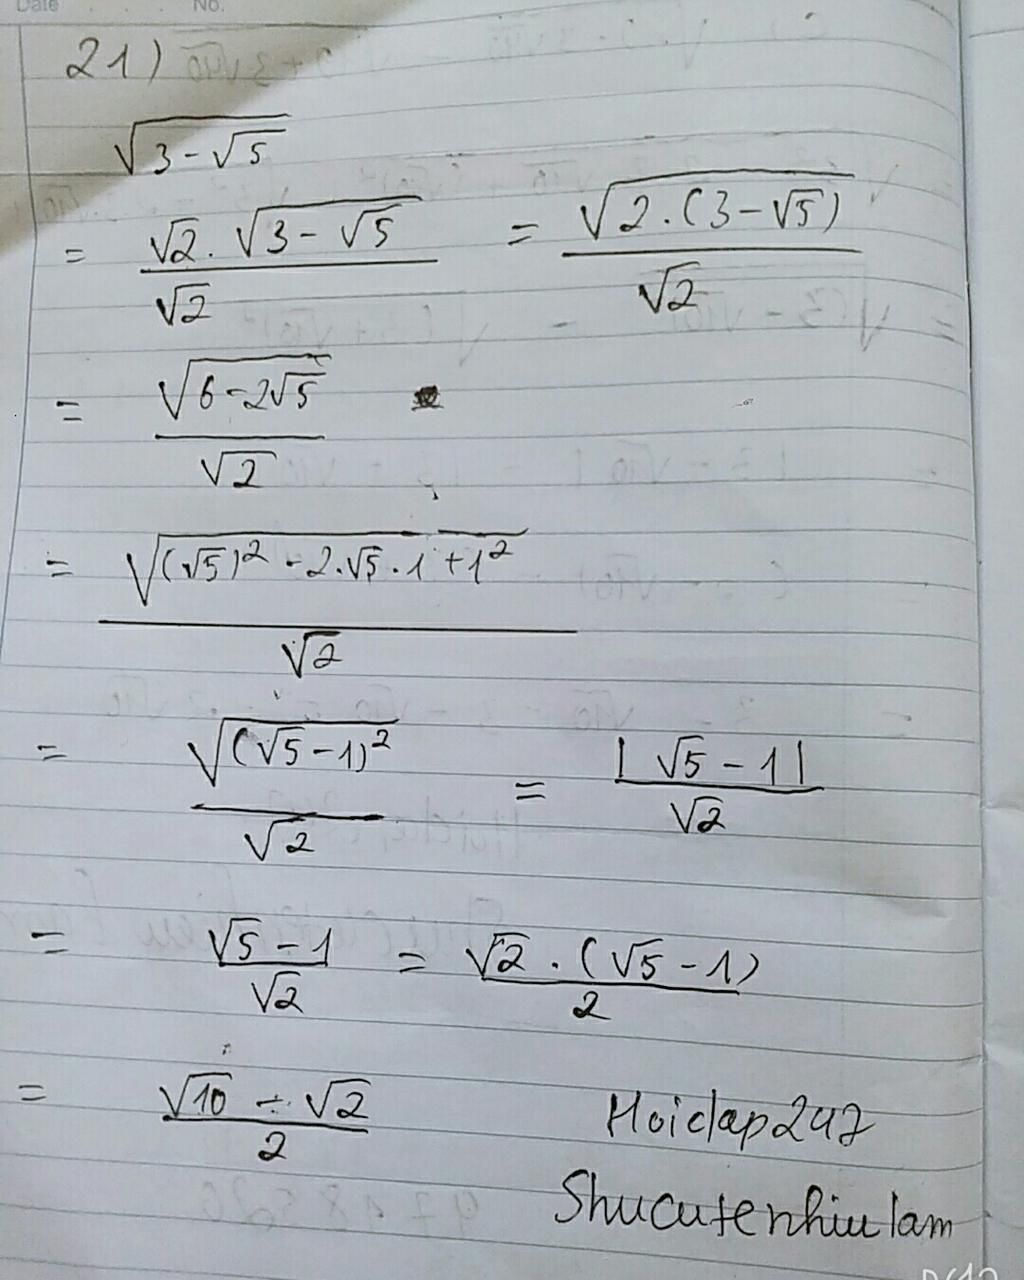 Date No.
21)
√(3 - √5)
= (√2 . √(3 - √5))/√2 = √(2 . (3 - √5))/√2
= √(6 - 2√5)/√2
= √((√5)² - 2.√5.1 + 1²)/√2
= √((√5 - 1)²)/√2 = |√5 - 1|/√2
= (√5 - 1)/√2 = (√2 . (√5 - 1))/2
= (√10 - √2)/2
Hoidap247
Shucutenhiulam